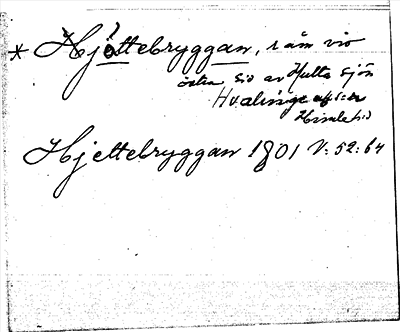 * Hjöttebryggan, råm vid
östra sid av Hulta sjön
Hvalinge
Himle hd
Hjettebryggan 1801 V: 52: 64